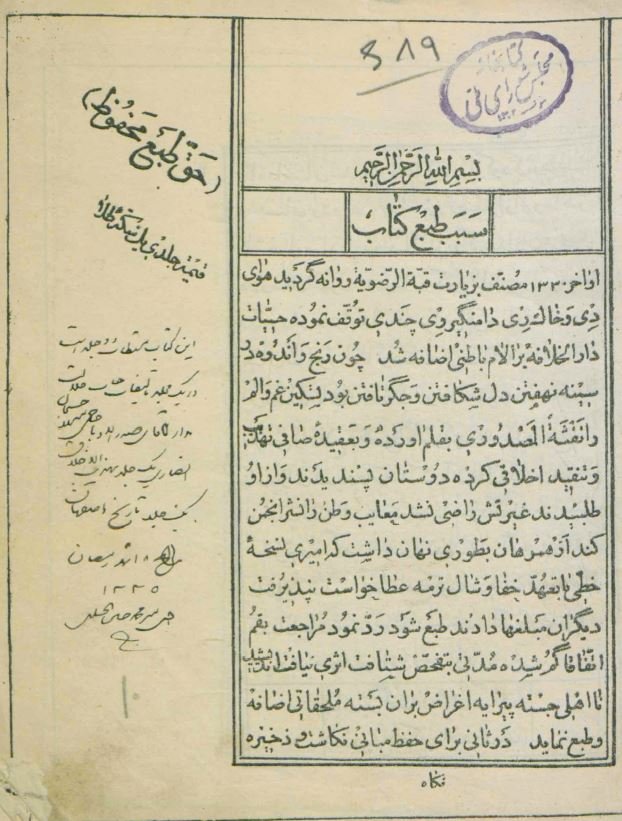 ۸۱۹
کتابخانه
مجلس شورای ملی
بسم الله الرحمن الرحیم
سبب طبع کتاب
اواخر ۱۳۳۰ مصنف بزیارت قبة الرضویة روانه گردید هوای
ری و خاك ری دامنگیر وی چندی توقف نموده حسیّات
دار الخلافه بر آلام باطنی اضافه شد چون رنج و اندوه در
سینه نهفتن دل شکافتن و جگر تافتن بود لتسکین غم و الم
را نفثة المصدوری بقلم آورده و بعقیدۀ صافی تهذیب
و تنقید اخلاقی کرده دوستان پسند بدند و از او
طلبیدند غیرتش راضی نشد معایب وطن را نشر انجمن
کند از هر سر هان بطوری نهان داشت که امیری نسخۀ
خطی با تعهد خفا و شال ترمه عطا خواست نپذیرفت
دیگران مبلغها دادند طبع شود ردّ نمود مراجعت بقم
اتفاقا گم شده مدتی بتفحص شتافت اثری نیافت اندیشید
نا اهلی جسته پیرایه اغراض بران بسته ملحقاتی اضافه
و طبع نماید در ثانی برای حفظ مبانی نگاشت و ذخیره
نگاه
(حق طبع محفوظ)
قیمة جلدی یك
این کتاب و جلد است
در یک جلد تالیفات
انصاری یک جلد
یک جلد تاریخ اصفهان
رمضان
۱۳۳۵
۱۰